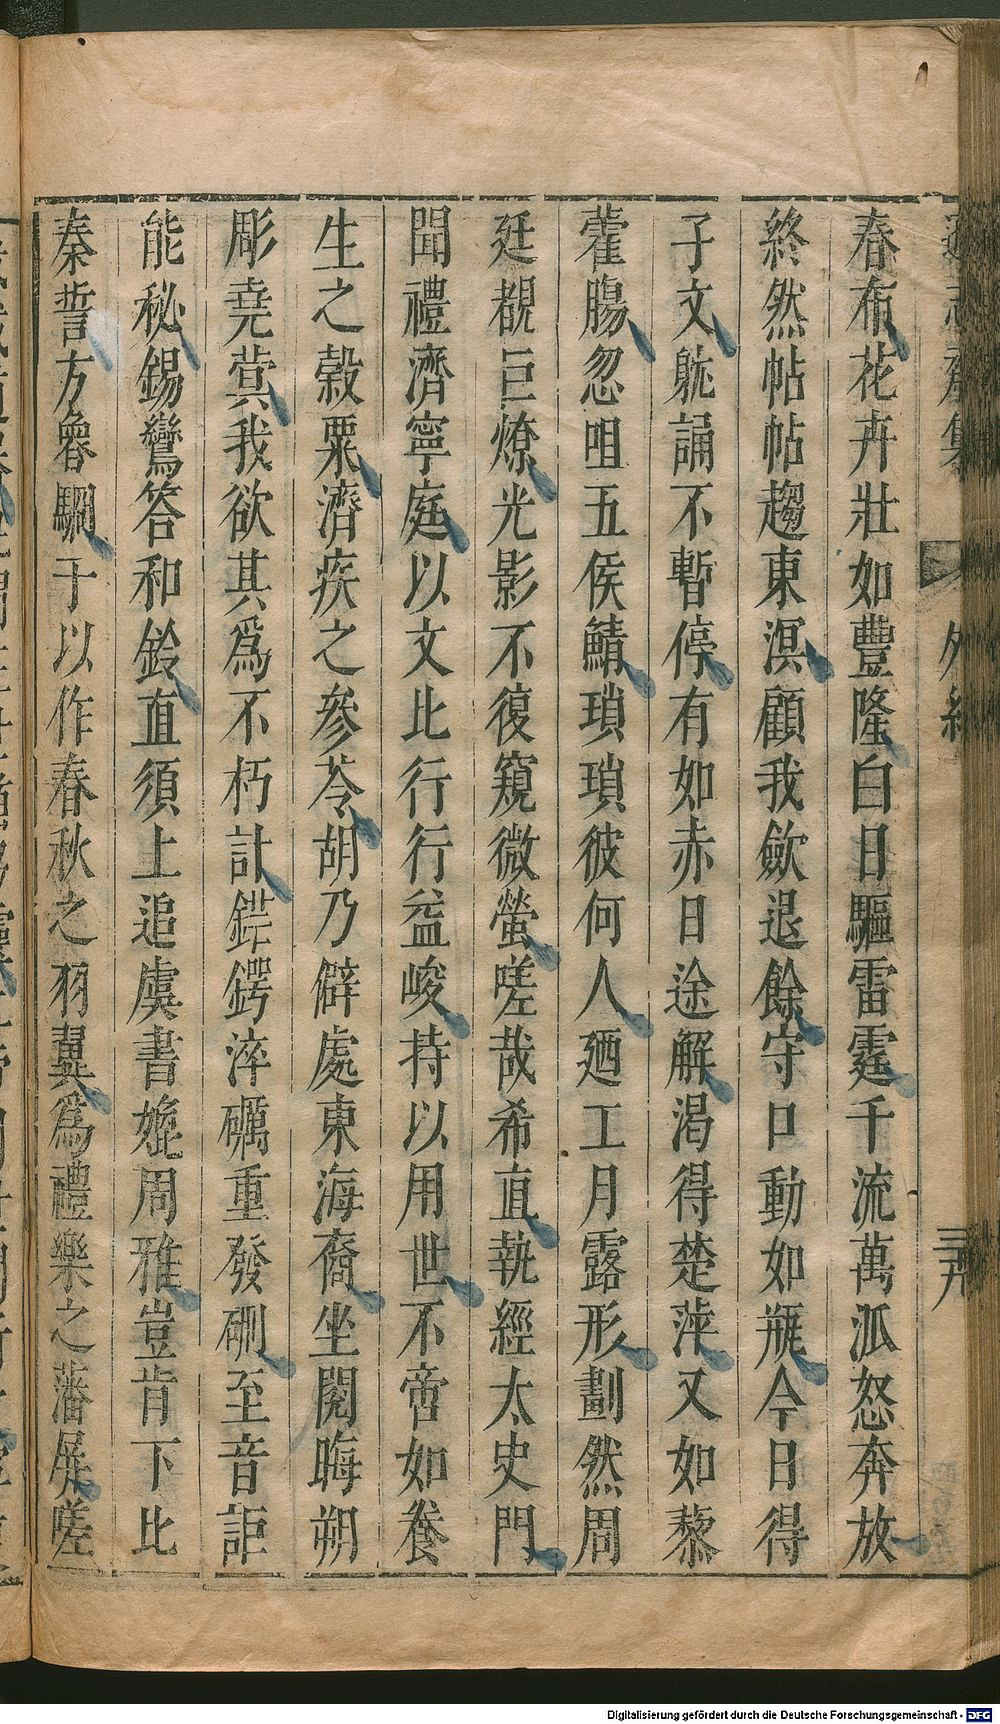 春布花卉壯如豐隆白日驅雷霆千流萬派怒奔放
終然帖帖趨東溟顧我歛退餘守口動如瓶今日得
子文躭誦不暫停有如赤日途解渴得楚萍又如藜
藿腸忽咀五侯鯖瑣瑣彼何人廼工月露形劃然周
廷覩巨燎光影不復窺微螢嗟哉希直執經太史門
聞禮濟寧庭以文比行行益峻持以用世不啻如養
生之穀粟濟疾之參苓胡乃僻處東海裔坐閱晦朔
彫堯蓂我欲其爲不朽計鋩鍔淬礪重發硎至音詎
能秘鍚鸞答和鈴直須上追虞書媲周雅豈肯下比
秦誓方魯駉于以作春秋之羽翼爲禮樂之藩屏嗟
外紀
Digitalisierung gefördert durch die Deutsche Forschungsgemeinschaft - DFG